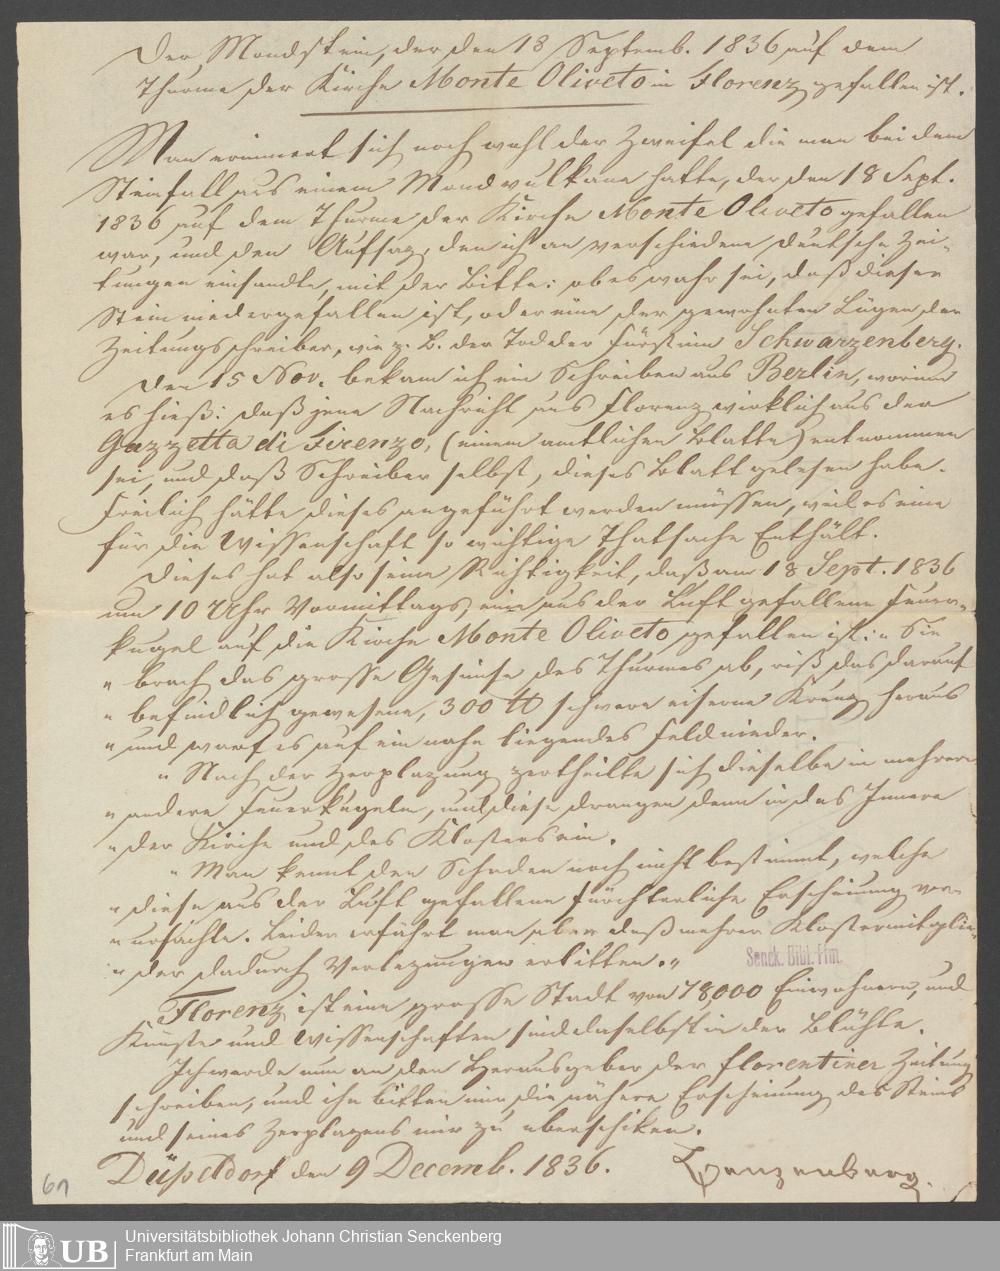 Der Mondstein, der den 18 Septemb. 1836 auf dem
Thurme der Kirche Monte Oliveto in Florenz gefallen ist.
Man erinnert sich noch wohl der Zweifel die man bei dem
Steinfall aus einem Mondvulkane hatte, der den 18 Sept.
1836 auf dem Thurme der Kirche Monte Oliveto gefallen
war, und den Aufsaz, den ich an verschiedene deutsche Zei-
tungen einsandte, mit der Bitte: ob es wahr sei, daß dieser
Stein niedergefallen ist, oder eine der gewohnten Lügen der
Zeitungsschreiber, wie z. B. der Tod der Fürstinn Schwarzenberg.
Den 15 Nov. bekam ich ein Schreiben aus Berlin, worinn
es hieß: daß jene Nachricht aus Florenz wirklich aus der
Gazzetta di Firenze, (einem amtlichen Blatte) entnommen
sei, und daß Schreiber selbst, dieses Blatt gelesen habe.
Freilich hätte dieses angeführt werden müssen, weil es eine
für die Wissenschaft so wichtige Thatsache Enthält.
Dieses hat also seine Richtigkeit, daß am 18 Sept. 1836
um 10 Uhr Vormittags, eine aus der Luft gefallene Feuer-
kugel auf die Kirche Monte Oliveto gefallen ist: „Sie
„brach das grosse Gesimse des Thurmes ab, riß das darauf
„befindlich gewesene, 300 ℔ schwere eiserne Kreuz heraus
„und warf es auf ein nahe liegendes Feld nieder.
„Nach der Zerplazung zertheilte sich dieselbe in mehrere
„andere Feuerkugeln, und diese drangen dann in das Innere
„der Kirche und des Klosters ein.
„Man kennt den Schaden noch nicht bestimmt, welche
„diese aus der Luft gefallene fürchterliche Erscheinung ver-
„ursachte. Leider erfährt man aber daß mehrere Klostermitglie-
„der dadurch Verlezungen erlitten.„
Senck. Bibl. Ffm.
Florenz ist eine grosse Stadt von 78000 Einwohnern, und
Künste und Wissenschaften sind daselbst in der Blühte.
Ich werde nun an den Herausgeber der florentiner Zeitung
schreiben, und ihn bitten mir die nähere Erscheinung des Steins
und seines Zerplazens mir zu überschiken.
Düsseldorf den 9 Decemb. 1836. Benzenberg.
Universitätsbibliothek Johann Christian Senckenberg
UB
Frankfurt am Main